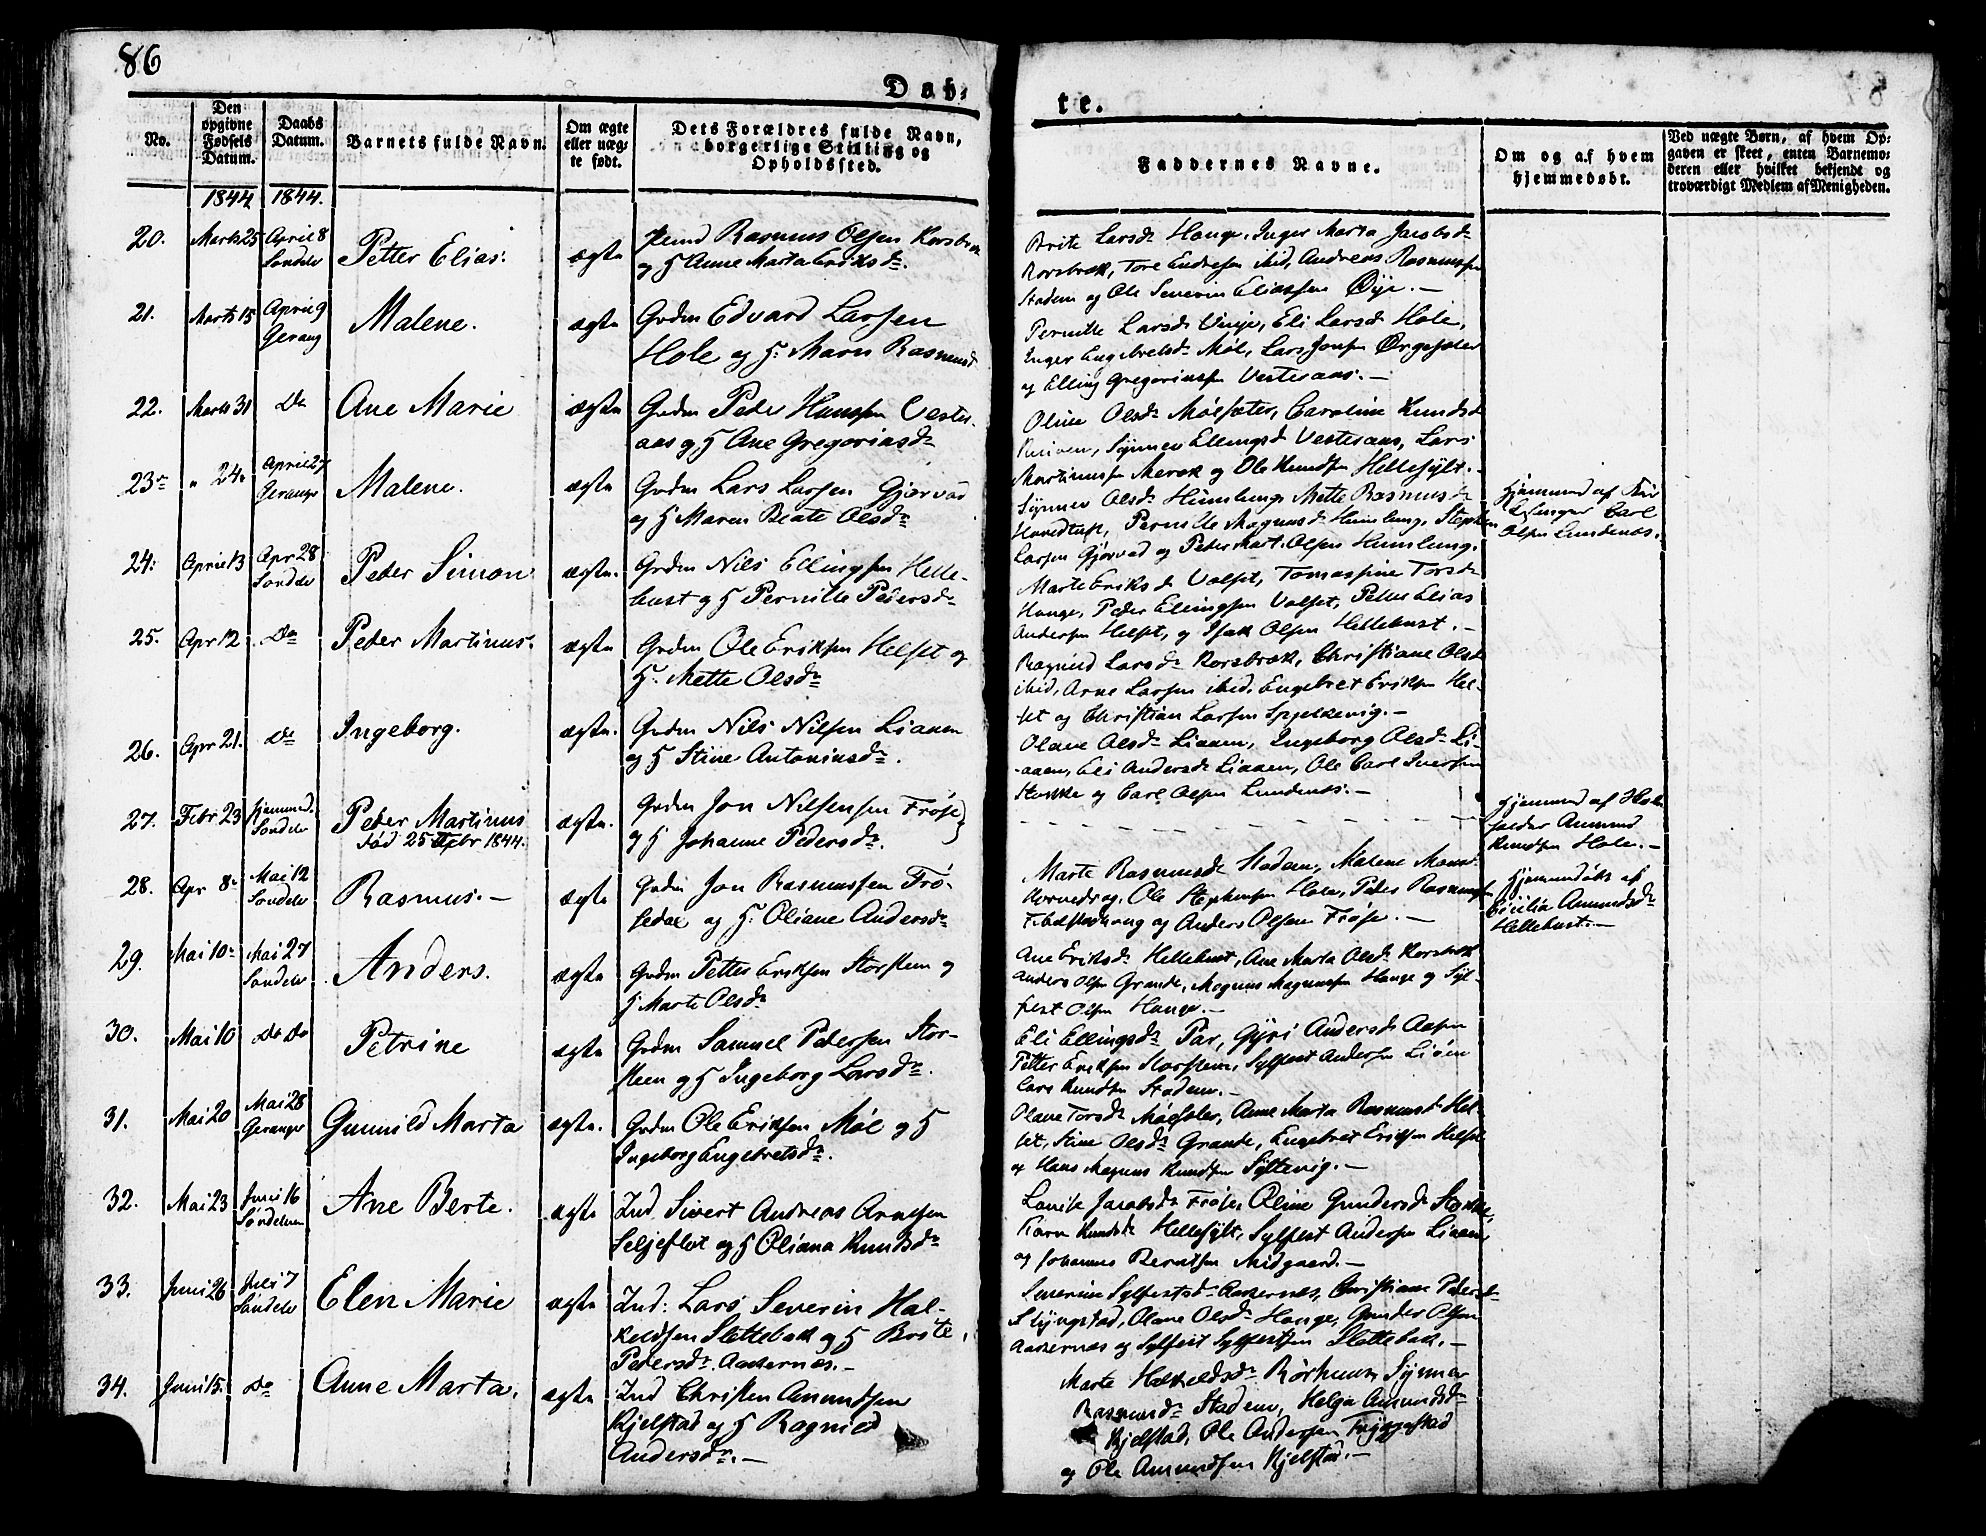 86
Døb-
te.
No.
Den opgivne Fødsels Datum.
Daabs Datum.
Barnets fulde Navn.
Om ægte eller uæg-te født.
Dets Forældres fulde Navn, borgerlige Stilling og Opholdssted.
Faddernes Navne.
Om og af hvem hjemmedøbt.
Ved uægte Børn, af hvem Op-gaven er skeet, enten Barnemo-deren eller hvilket bekjendt og troværdigt Medlem af Menigheden.
1844 1844.
20. Marts 25 April 8 Petter Elias. ægte Rasmus Olsen Korsbræk
og H Anne Marta Eriksdr.
Brite Larsdr Hauge, Inger Marta Jacobsdr
Korsbræk, Tore Endresen ibid, Andreas Rasmussen
Stadem og Ole Severin Eliassen Øye. —
21. Marts 15 April 9 Gerang Malene. ægte Grdm Edvard Larsen
Hole og H. Maren Rasmusd
Pernille Larsdr Vinje, Eli Larsd Hole,
Inger Engebretsdr Møl, Lars Jonsen
og Elling Gregoriussen Vesteraas. —
22. Marts 31 Do Ane Marie ægte Grdm Peder Hanssen Vester-
aas og H Ane Gregoriusdr
Oline Olsdr Mølsæter, Caroline Knudsd
Kniven, Synnev Ellingsd Vesteraas, Lars
Martinussen Merok og Ole Knudsen Hellesylt. —
23 " 24 April 27 Geranger Malene. ægte Grdm Lars Larsen Gjørvad
og H Maren Beate Olsdr
Synnev Olsdr Humlung, Mette Rasmusdr
Hovedtup, Pernille Magnusdr Humlung, Stephen
Larsen Gjørvad og Peder Mart. Olsen Humlung.
Hjemmed af
Carl
Olsen Lundenæs.
24. April 13 Apr 28 Peder Simon ægte. Grdm Nils Ellingsen Helle-
bust og H Pernille Pedersdr
Marte Eriksdr Volset, Tomassine Torsdr
Hauge, Peder Ellingsen Volset, Petter Elias
Andersen Helset, og Isak Olsen Hellebust. —
25. Apr 12 Do Peder Martinus. ægte Grdm Ole Eriksen Helset og
H. Mette Olsdr
Ragnild Larsdr Korsbræk, Christiane Olsd
ibid, Arne Larsen ibid, Engebret Eriksen Hel-
set og Christian Larsen Spjelkevig. —
26. Apr 21. Do Ingeborg. ægte. Grdm Nils Nilsen Liaaen
og H Stine Antoniusdr.
Olave Olsdr Liaaen, Ingeborg Olsdr Li-
aaen, Eli Andersd Liaaen, Ole Carl Iversen
Stokke og Carl Olsen Lundenæs. —
27. Febr 23 Hjemmed. Peder Martinus ægte. Grdm Jon Nilsensen Frøse
død 25 Febr 1844. og H Johanne Pedersdr.
Hjemmed af
Amund
Knudsen Hole. —
28. Apr 8 Mai 12 Rasmus. — ægte Grdm Jon Rasmussen Frø-
sedal og H. Oliane Andersdr
Marte Rasmusdr Stadem, Malene
Ole Stephensen Hole, Peder Rasmussen
og Anders Olsen Frøse. —
Hjemmedøbt af
Cicilia Amundsdr
Hellebust. —
29. Mai 10 Mai 27 Anders. ægte Grdm Petter Eriksen Storsteen og
H Marte Olsdr
Ane Eriksdr Hellebust, Ane Marta Olsdr Korsbræk
Anders Olsen Grande, Magnus Magnussen Hauge og Syl-
fest Olsen Hauge. —
30. Mai 10 Do Do Petrine ægte Grdm Samuel Pedersen Stor-
steen og H Ingeborg Larsdr.
Eli Ellingsdr Par, Gyri Andersdr Aasen
Petter Eriksen Storsteen, Sylfest Andersen Liøen
Lars Knudsen Stadem. —
31. Mai 20 Mai 28 Geranger Gunnild Marta ægte. Grdm Ole Eriksen Møl og H
Ingeborg Engebretsdr.
Olave Torsdr Mølsæter, Anne Marta Rasmusdr Hel-
set, Stine Olsdr Grande, Engebret Eriksen Helset
og Hans Magnus Knudsen Syltevig. —
32. Mai 23 Juni 16 Ane Berte. ægte Ind Sivert Andreas Arnesen
Seljeflot og H Oliana Knudsdr
Lovise Jacobsdr Frøse, Oline Gundersdr Stokke,
Karn Knudsdr Hellesylt, Sylfest Andersen Liaaen
og Johannes Berntsen Midgaard. —
33. Juni 26 Juli 7 Elen Marie ægte Ind: Lars Severin Hal-
keldsen Slettebak og H Brite
Pedersdr. Aakernæs. —
Severine Sylfestsdr Aakernæs, Christiane Pedersdr
Stryngstad, Olave Olsdr Hauge, Gunder Olsen
Aakernæs og Sylfest Sylfestsen Slettebak. —
34. Juni 15. Do Anne Marta. ægte Ind Christen Amundsen
Kjelstad og H Ragnild
Andersdr. —
Marte Halkeldsdr Rørhuus, Synnev
Rasmusdr Stadem, Helga Amundsdr
Kjelstad, Ole Andersen Tryggestad
og Ole Amundsen Kjelstad. —